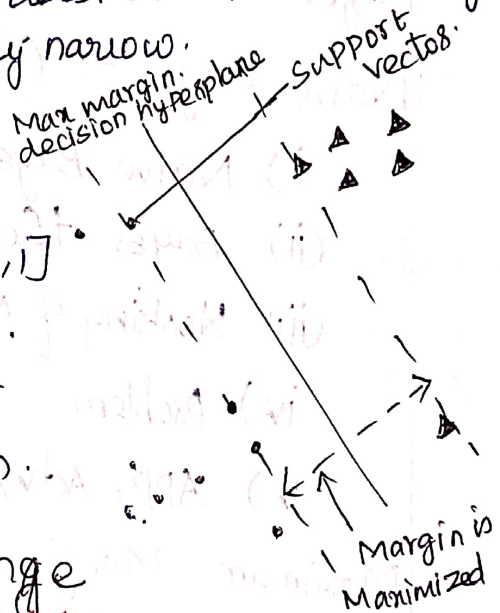 y narrow.
Max margin.
decision hyperplane
support
vector.
,1]
Margin is
Maximized
nge